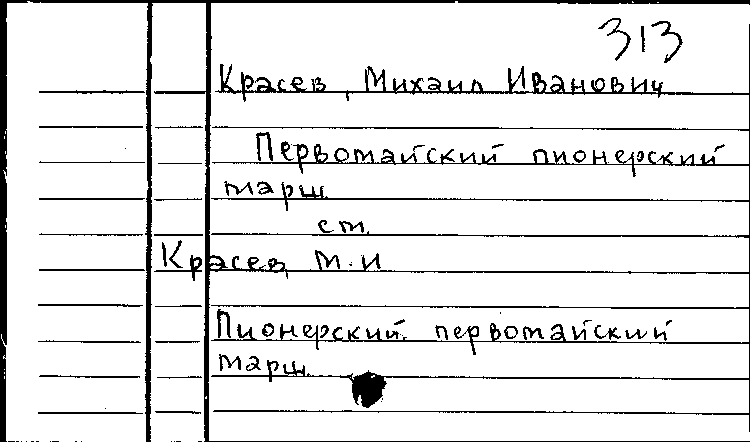 313
Красев, Михаил Иванович
Первомайский пионерский
марш.
см.
Красев, М.И
Пионерский первомайский
марш.